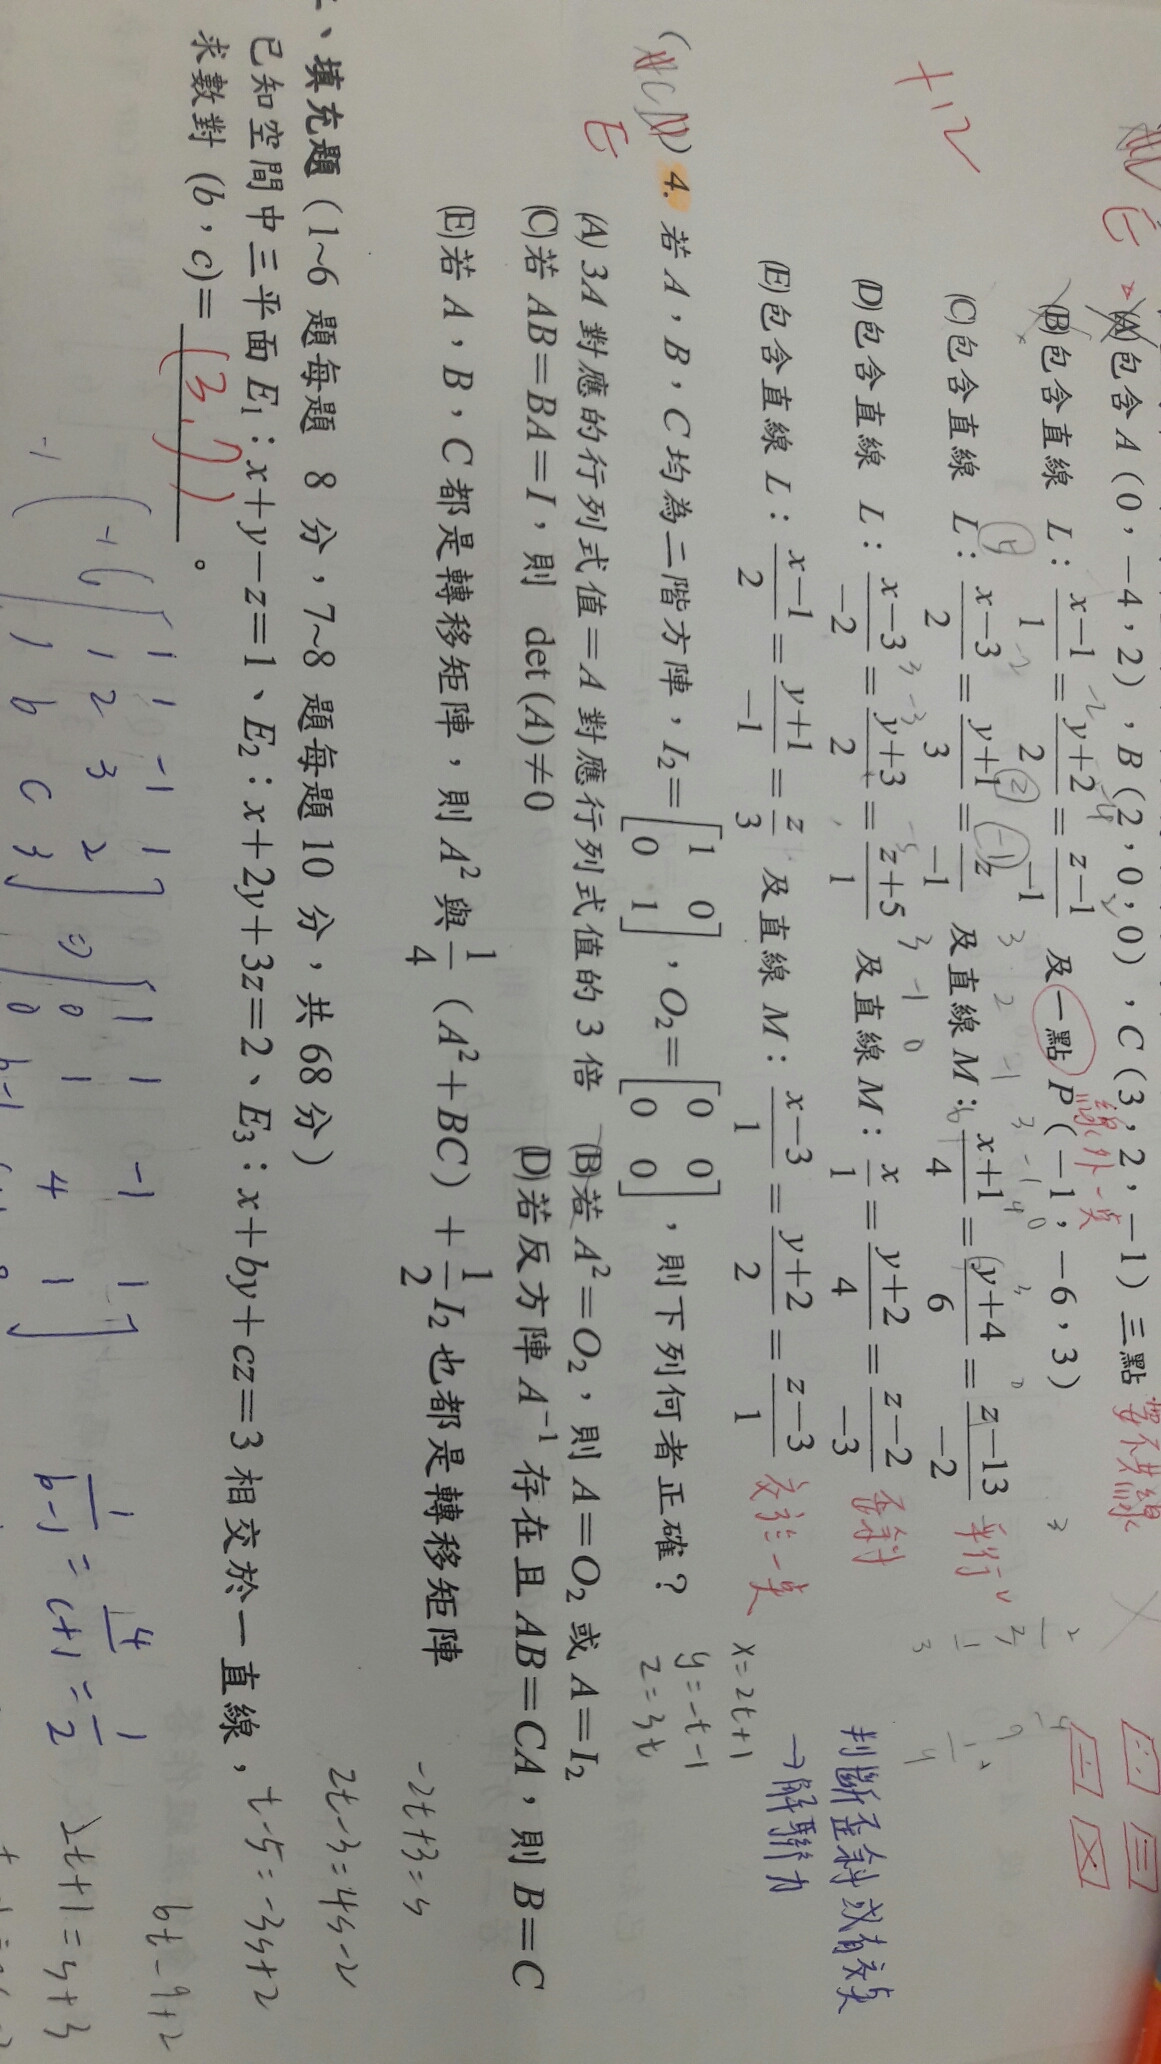 (A)包含A(0,-4,2),B(2,0,0),C(3,2,-1)三點
(B)包含直線 L:\frac{x-1}{1}=\frac{y+2}{2}=\frac{z-1}{-1} 及一點P(-1,-6,3)
線外一点
(C)包含直線 L:\frac{x-3}{2}=\frac{y+1}{3}=\frac{z}{-1} 及直線M:\frac{x+1}{4}=\frac{y+4}{6}=\frac{z-13}{-2} 平行
(D)包含直線 L:\frac{x-3}{-2}=\frac{y+3}{2}=\frac{z+5}{1} 及直線M:\frac{x}{1}=\frac{y+2}{4}=\frac{z-2}{-3} 歪斜
判斷歪斜或有交点
→解聯力
(E)包含直線 L:\frac{x-1}{2}=\frac{y+1}{-1}=\frac{z}{3} 及直線M:\frac{x-3}{1}=\frac{y+2}{2}=\frac{z-3}{1} 交於一点
+12
x=2t+1
y=-t-1
z=3t
E
4. 若A,B,C均為二階方陣,I₂=[1 0; 0 1],O₂=[0 0; 0 0],則下列何者正確?
(A) 3A對應的行列式值=A對應行列式值的3倍 (B)若A²=O₂,則A=O₂或A=I₂
(C)若AB=BA=I,則 det(A)≠0 (D)若反方陣A⁻¹存在且AB=CA,則B=C
(E)若A,B,C都是轉移矩陣,則A²與\frac{1}{4}(A²+BC)+\frac{1}{2}I₂也都是轉移矩陣
-2t+3=s
2t-3=4s-2
t-5=-3s+2
、填充題(1~6 題每題 8 分,7~8 題每題10 分,共68分)
已知空間中三平面E₁:x+y-z=1、E₂:x+2y+3z=2、E₃:x+by+cz=3相交於一直線,
求數對(b,c)= (3,7) 。
6t-9+2
2t+1=s+3
1 1 -1 1
1 2 3 2
1 b c 3
⇒
1 1 -1 1
0 1 4 1
\frac{1}{b-1}=\frac{4}{c+1}=\frac{1}{2}